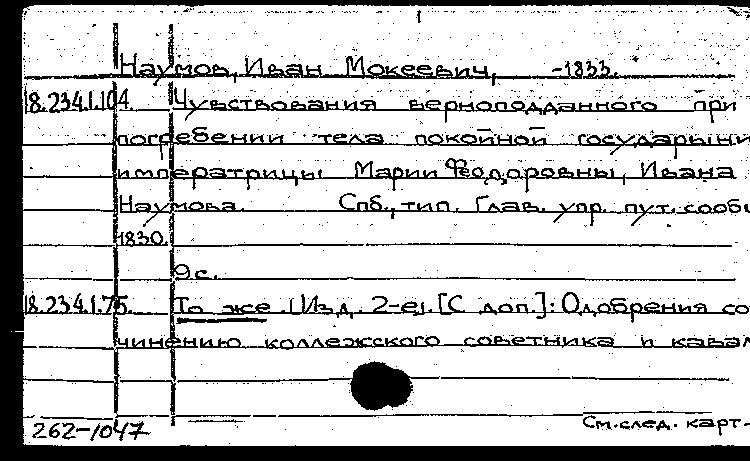 Наумов, Иван Мокеевич, -1833.
18.234.1.104. Чувствования верноподданного при
погребении тела покойной государыни
императрицы Марии Феодоровны, Ивана
Наумова. Спб., тип. Глав. упр. пут. сообщ
1830.
9с.
18.234.1.75. То же. [Изд. 2-е]. [С доп.]: Одобрения со-
чинению коллежского советника и кавал
262-1047 См. след. карт-